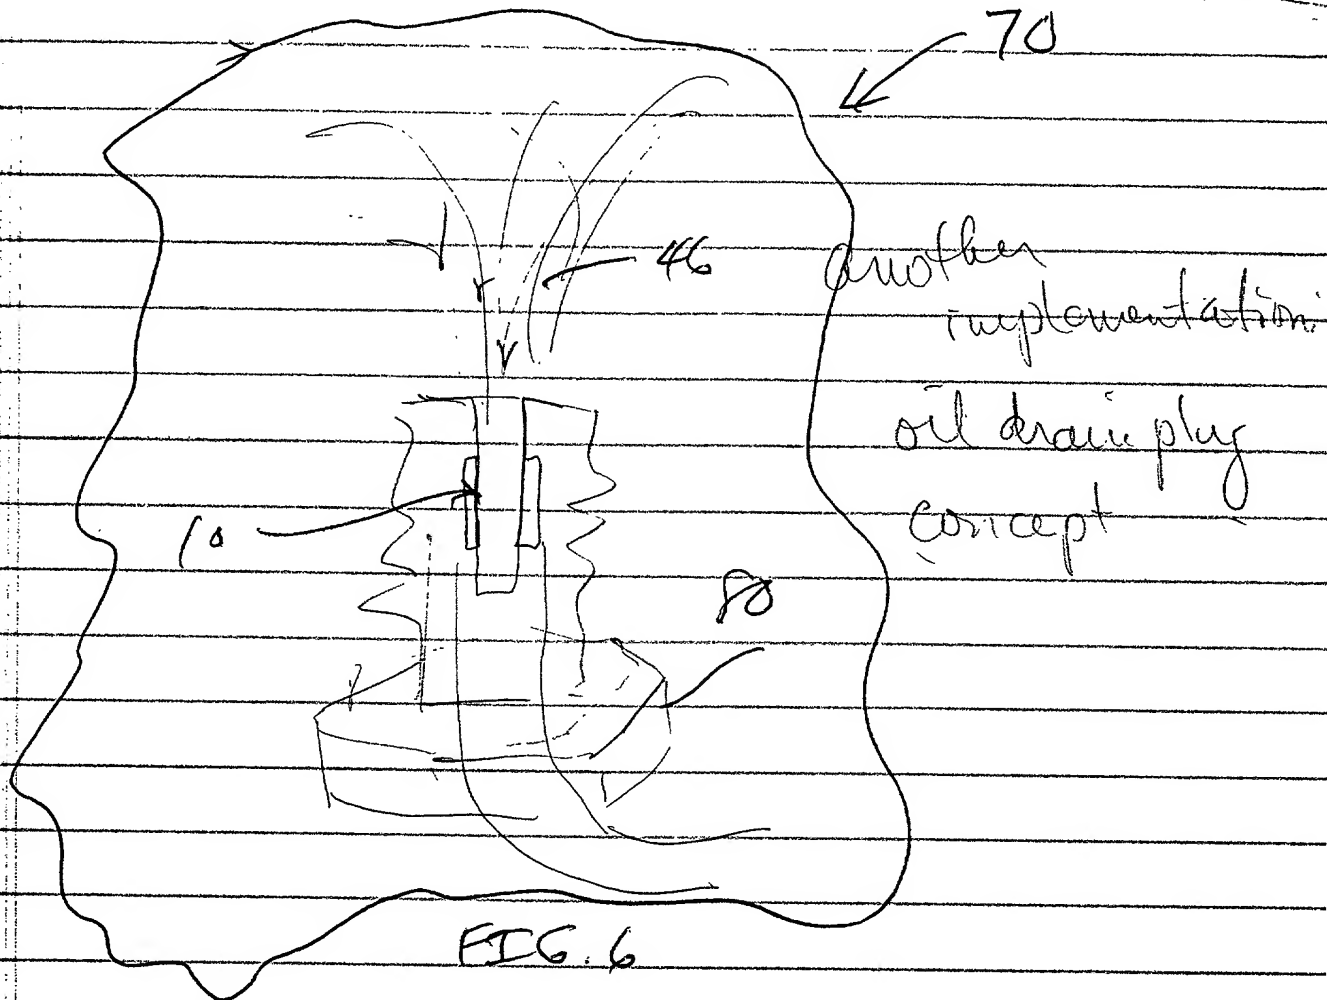 70
46
another
implementation
oil drain plug
concept
10
80
FIG. 6